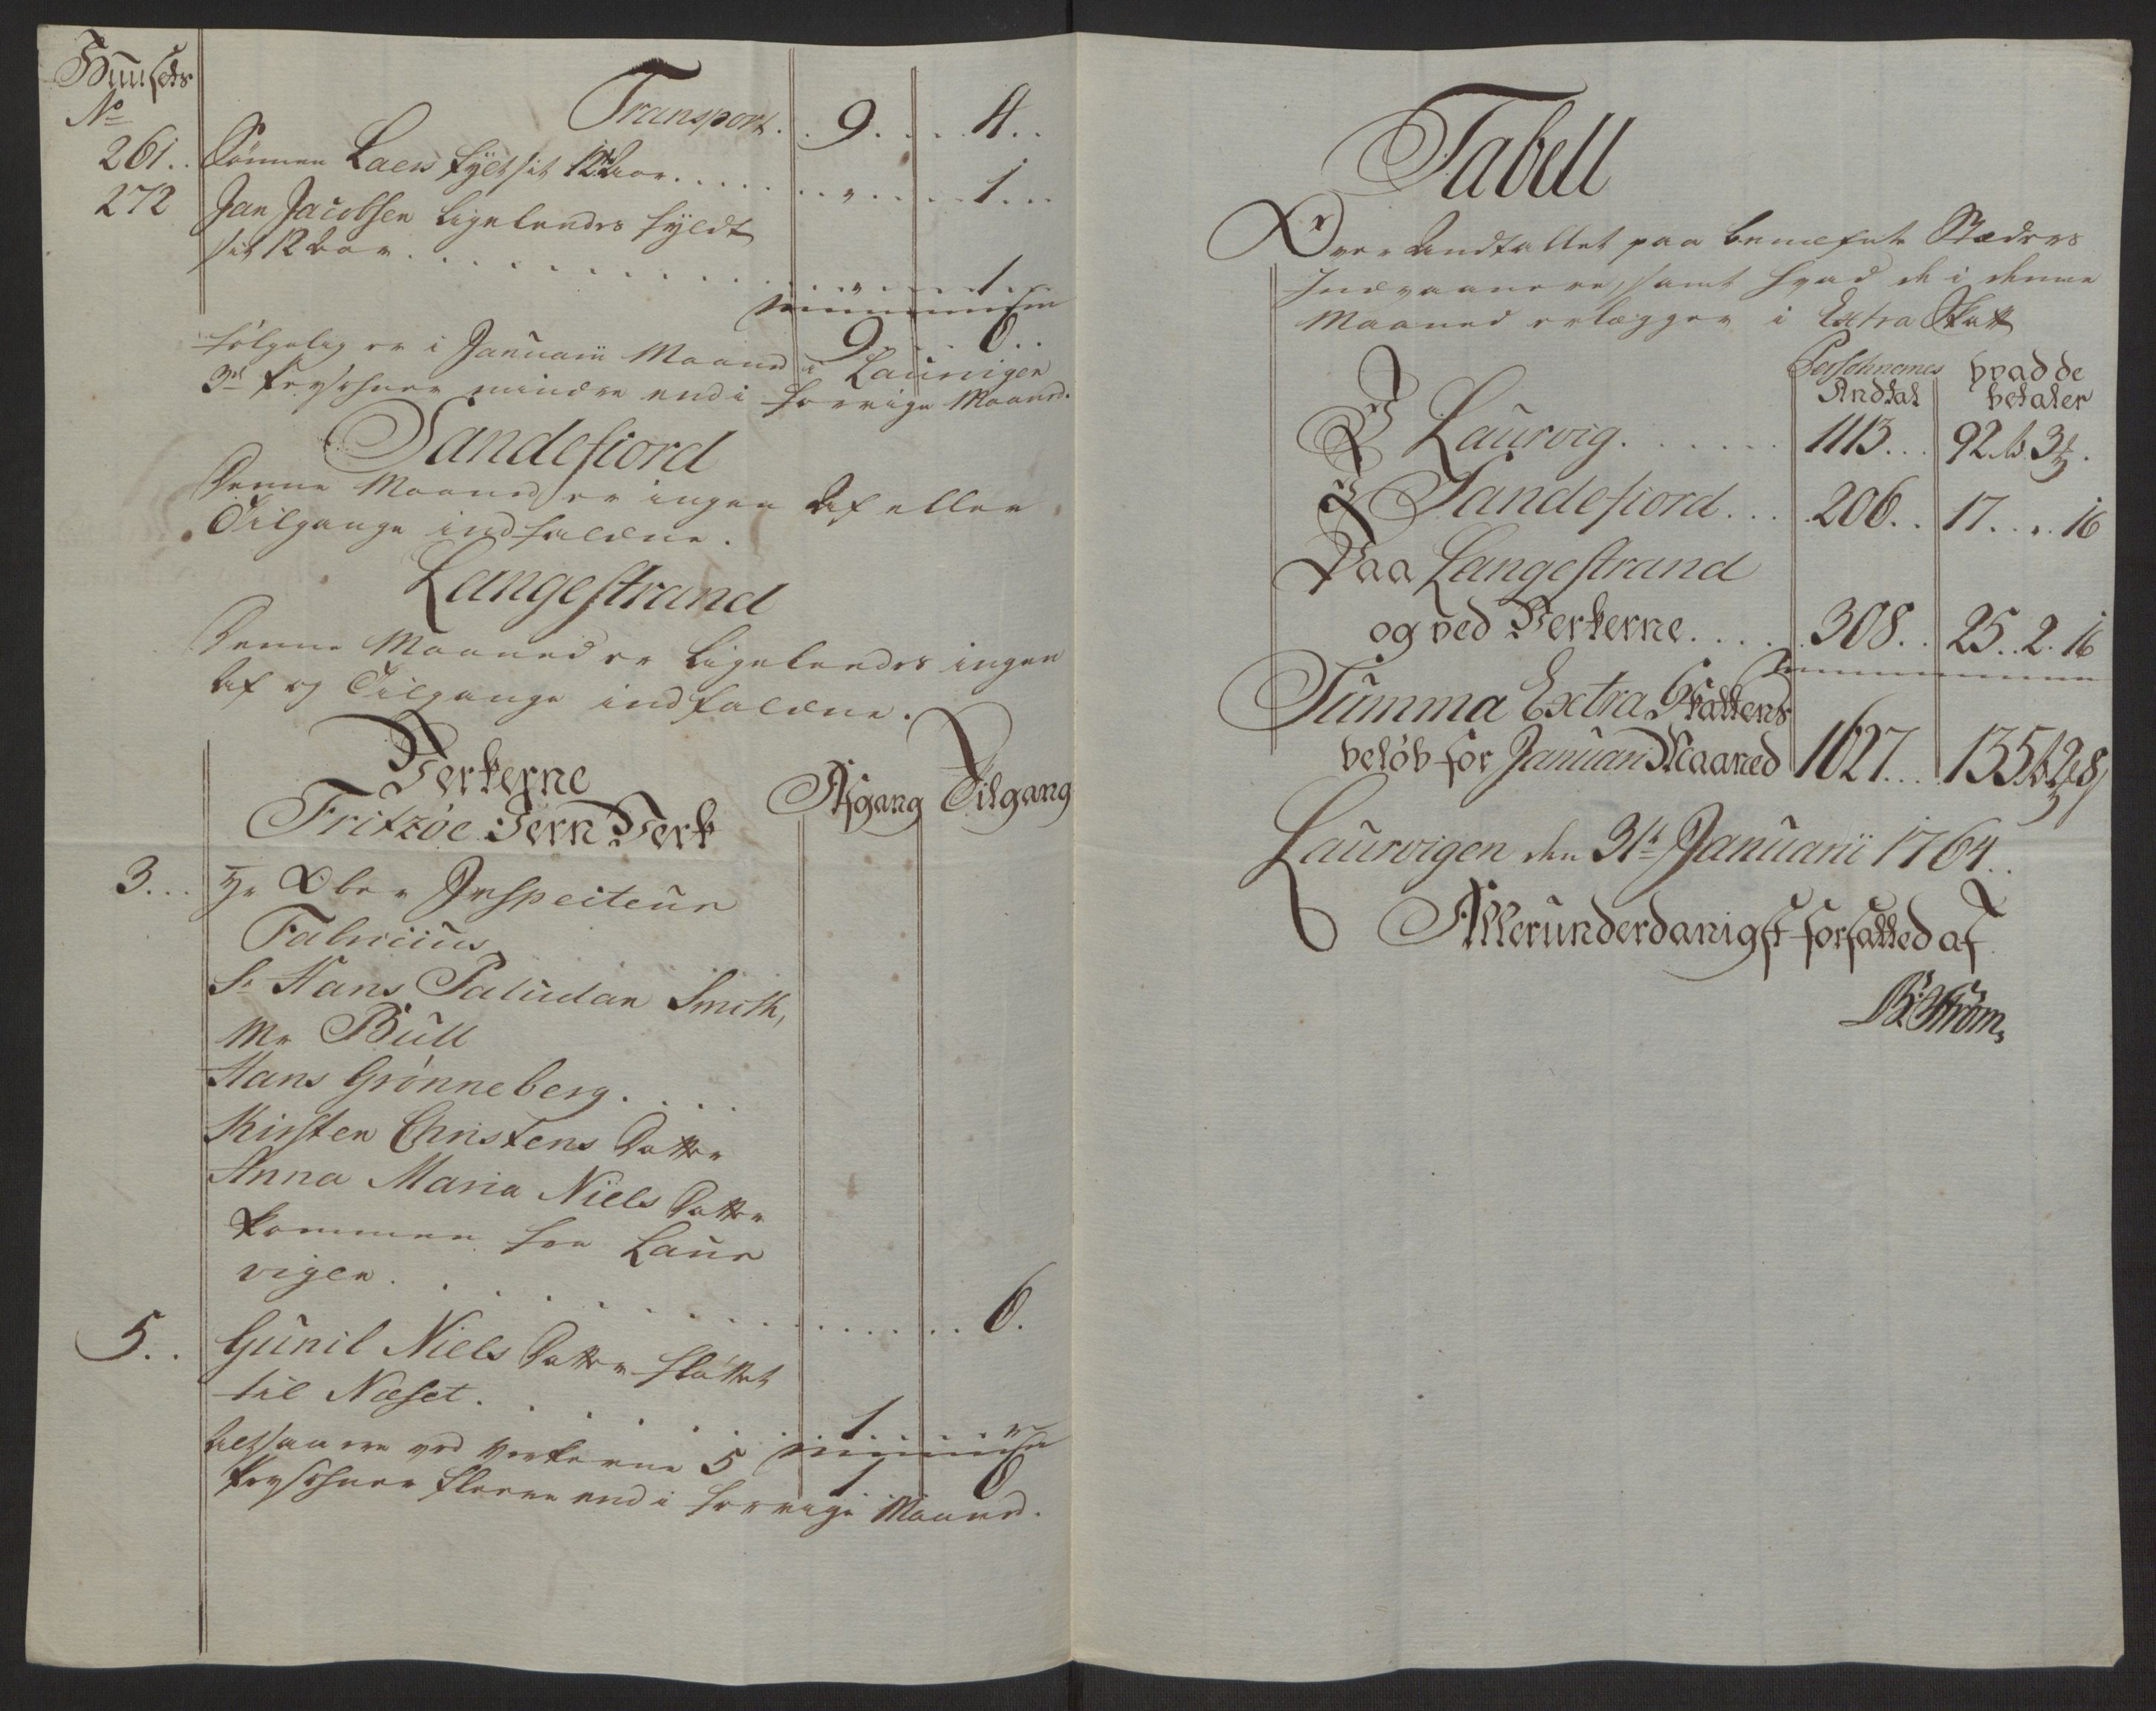 Huusets
No
Transport . . 9 . . . . 4 . .
261 . . Sönnen Laers fyldt sit 12te Aar . . . . . . . „ . . . . 1 . . .
272 Jan Jacobsen ligeleedes fyldt
sit 12 Aar . . . . . . . . . . . . „ . . . . 1 . .
9 . . . . 6 . .
følgelig er i Januarii Maaned i Laurvigen
3de Persohner mindre end i forrige Maaned.
Sandefiord
Denne Maaned er ingen Af eller
Tilgange indfaldne.
Langestrand
Denne Maaned er ligeleedes ingen
Af og Tilgange indfaldne.
Verkerne
Fritzøe Jern Verk
Afgang Tilgang
3 . . . Hr Ober Inspecteur
Fabricius
Sr Hans Paludan Smith,
Mr Bull
Hans Grönneberg . . . .
Kirsten Christens Datter
Anna Maria Niels Datter
kommen fra Laur
vigen . . . . . . . . . . . . . 6 .
5 . . Gunil Niels Datter flöttet
til Næset . . . . . . . 1 . . . „
1 6
Altsaa ere ved Verkerne 5
Persohner fleere end i forrige Maaned.
Tabell
Over Andtallet paa benæfnte Stæders
Indvaanere, samt hvad de i denne
Maaned erlægger i Extra Skatt
Persohnernes Andtal
hvad de betaler
I Laurvig . . . . . . 1113 . . . 92 rd 3 ℔ .
I Sandefiord . . . 206 . . 17 . . „ . 16
Paa Langestrand
og ved Verkerne . . . . . 308 . . 25 . . 2 . 16
Summa Extra Skattens
beløb for Januarii Maaned 1627 . . . 135 rd 2 ℔ 8 s
Laurvigen den 31te Januarii 1764 . .
Allerunderdanigst forfatted af
B: Strøm,